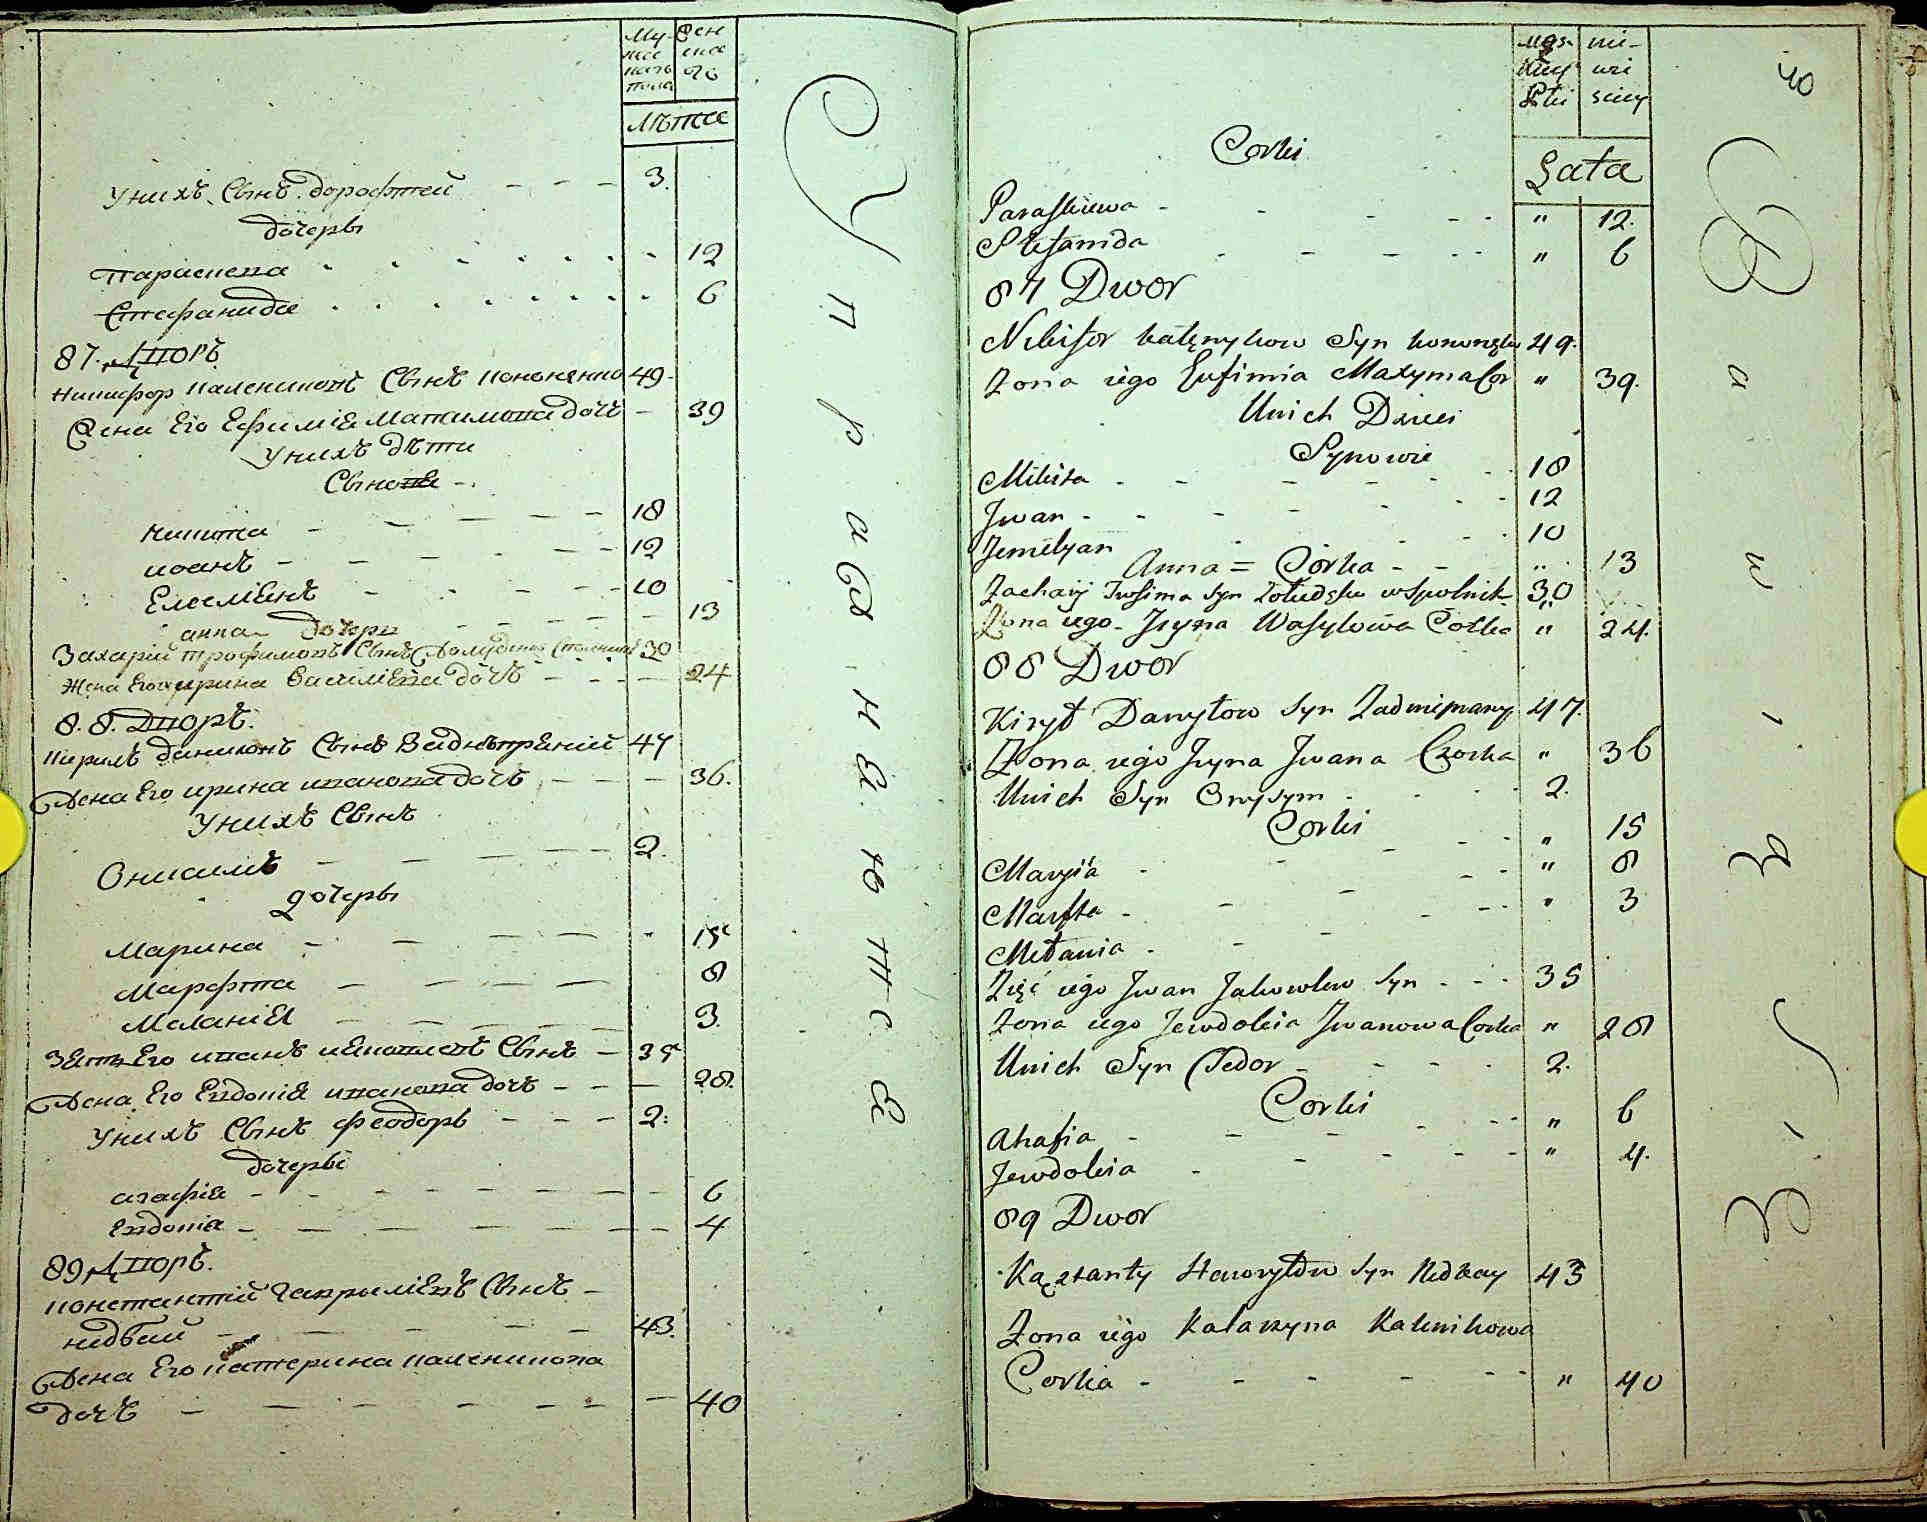 Му-
жес
каго
пола
Жен
ска
го
Лѣта
Унихъ Сынъ дорофтей - - - 3.
дочеры
Параскева 12
Стефанида 6
87. Дворъ
Никифор калениковъ Сынъ кононенко 49.
Жена Его Ефимія Матимова дочъ - 39
Унихъ дѣти
Сынове -
Никита - 18
иоанъ - 12
Емеліянъ - 10
анна дочери - 13
Захарій трофимовъ Сынъ 30
жена Его ирина Василіева дочъ - 24
8.8. Дворъ.
Кирилъ даниловъ Сынъ Заднѣпраній 47
Жена Его ирина иванова дочъ - 36.
Унихъ Сынъ
Онисимъ - 2.
дочеры
Марина - 15
Марфта - 8
Меланія - 3.
Зять Его иванъ иаковлевъ Сынъ - 35
Жена Его Евдокія иванова дочъ - 28.
Унихъ Сынъ Феодоръ - - - 2.
дочеры
агафія - 6
Евдокіа - 4
89 Дворъ.
Константій Гаврилієвъ Сынъ -
нидбай - 43.
Жена Его катерина каленикова
дочъ - 40
У п р а в н ю т с я
męs-
kiey
Płci
nie-
wie
sciey
Łata
40
Corki
Paraskiewa - " 12.
Stefanida - " 6
87 Dwor
Nikifor kalęnykow Syn kononęko 49.
Zona iego Eufimia Maxyma Cor " 39.
Unich Dzieci
Synowie
Mikita - 18
Jwan - 12
Jemelyan - 10
Anna = Córka - " 13
Zachary Trofima Syn Zołudęko wspolnik 30
Zona iego Jryna Wasylowa Corka " 24.
88 Dwor
Kirył Danyłow Syn Zadniprany 47.
Zona iego Jryna Jwana Czorka " 36
Unich Syn Onysym - 2.
Corki
" 15
Maryia - " 8
Marfta - " 3
Mełania -
Zięć iego Jwan Jakowlew Syn - - - 35
Zona iego Jewdokia Jwanowa Corka " 28
Unich Syn Fedor - 2.
Corki
Ahafia - " 6
Jewdokia - " 4.
89 Dwor
Kązstanty Hawryłow Syn Nidbay 43
Zona iego Katarzyna Kalenikowa
Corka - " 40